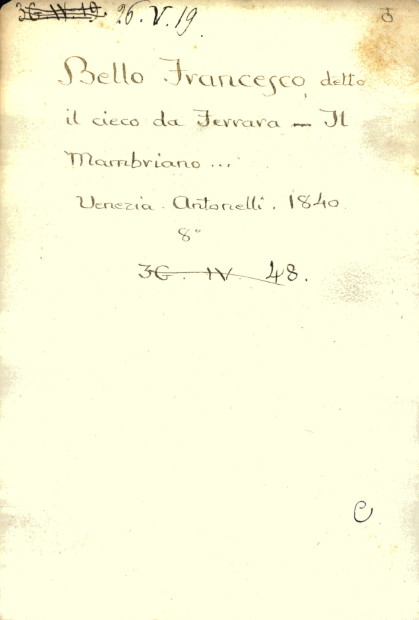 36.IV.19 26.V.19.
Bello Francesco, detto
il cieco da Ferrara - Il
Mambriano ...
Venezia. Antonelli. 1840.
8°
36. IV. 48.
C